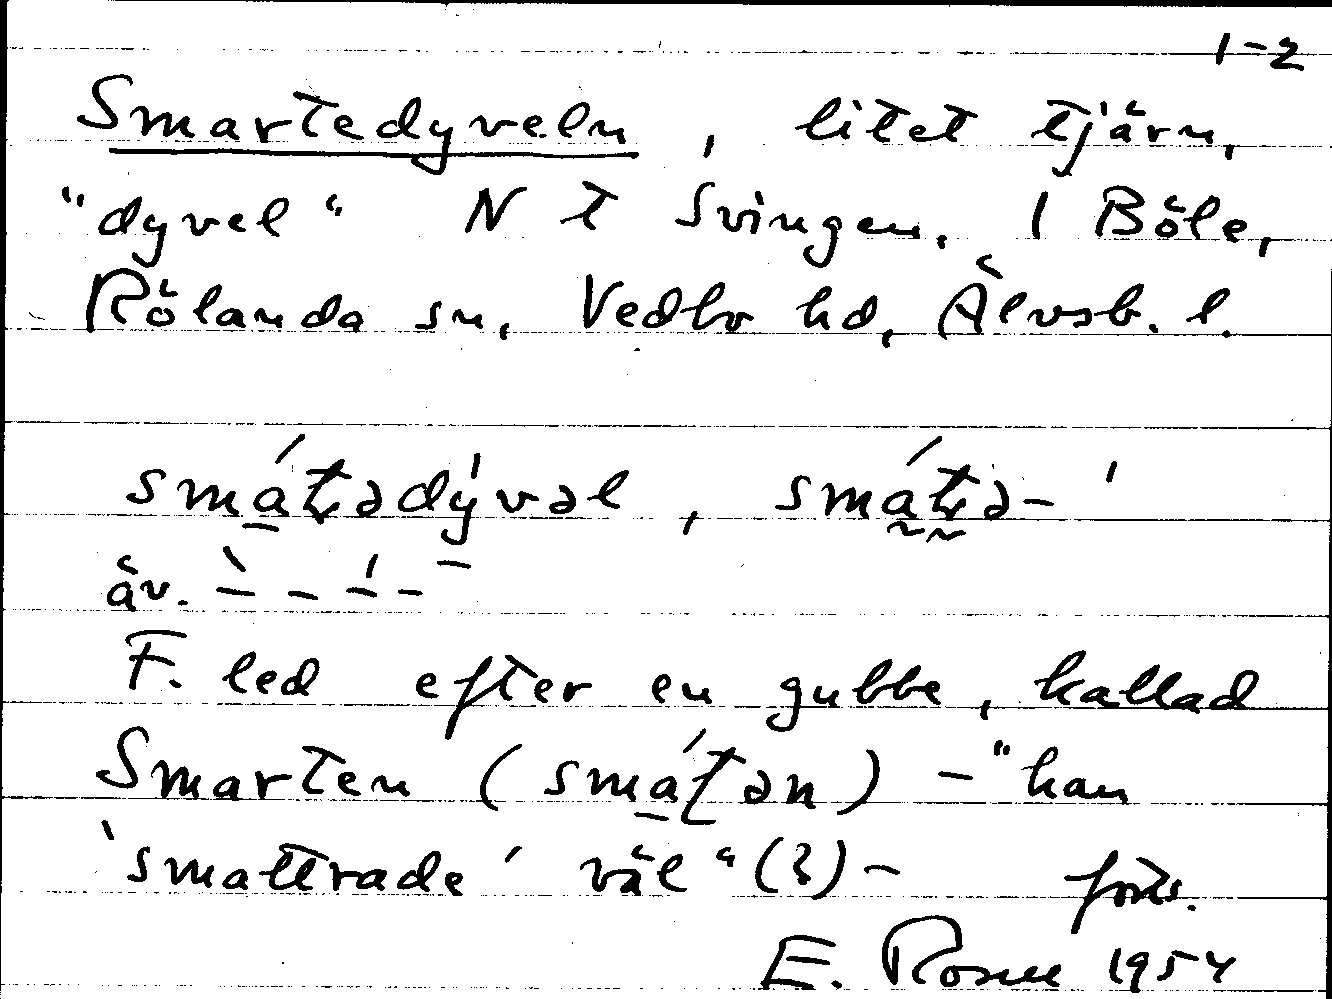 1-2
Smartedyveln, litet tjärn,
"dyvel" N t Svingen. I Böle,
Rölanda sn, Vedbo hd, Älvsb. l.
smáʈədývəl, smáʈə-'
äv.
F. led efter en gubbe, kallad
Smarten (smáʈən) - "han
'smattrade' väl" (?) - forts.
E. Rosell 1954